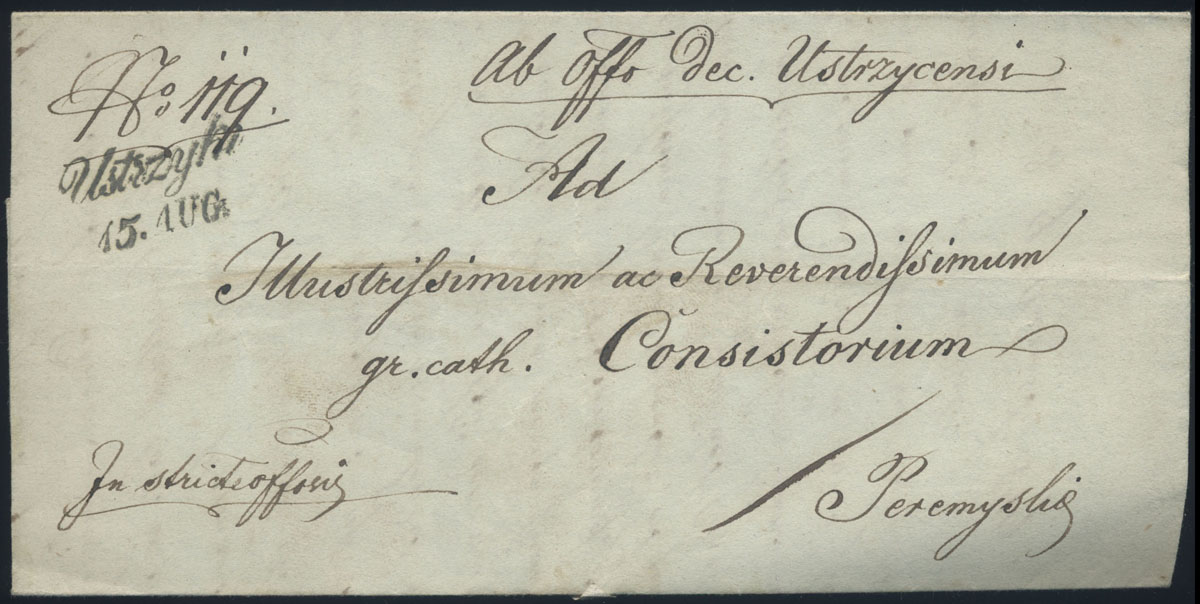 No 119.
Ab Offo dec. Ustrzycensi
Ustrzyki
15. AUG.
Ad
Illustrissimum ac Reverendissimum
gr. cath. Consistorium
In stricte offosis
Peremysliæ